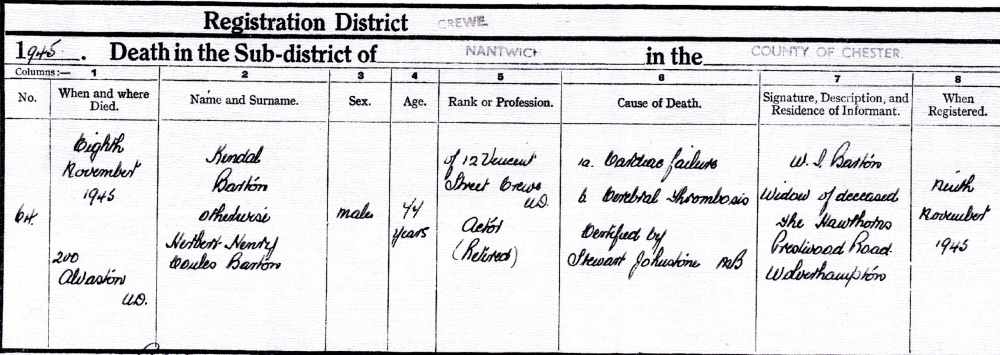 Registration District CREWE
1945. Death in the Sub-district of NANTWICH in the COUNTY OF CHESTER.
Columns:— 1 2 3 4 5 6 7 8
No. When and where Died. Name and Surname. Sex. Age. Rank or Profession. Cause of Death. Signature, Description, and Residence of Informant. When Registered.
64.
Eighth
November
1945
200
Alvaston
U.D.
Kendal
Barton
otherwise
Herbert Henry
Coules Barton
male
44
years
of 12 Vincent
Street Crewe
U.D.
Actor
(Retired)
1a. Cardiac failure
b. Cerebral Thrombosis
Certified by
Stewart Johnstone MB
W. I. Barton
Widow of deceased
The Hawthorns
Prestwood Road
Wolverhampton
Ninth
November
1945